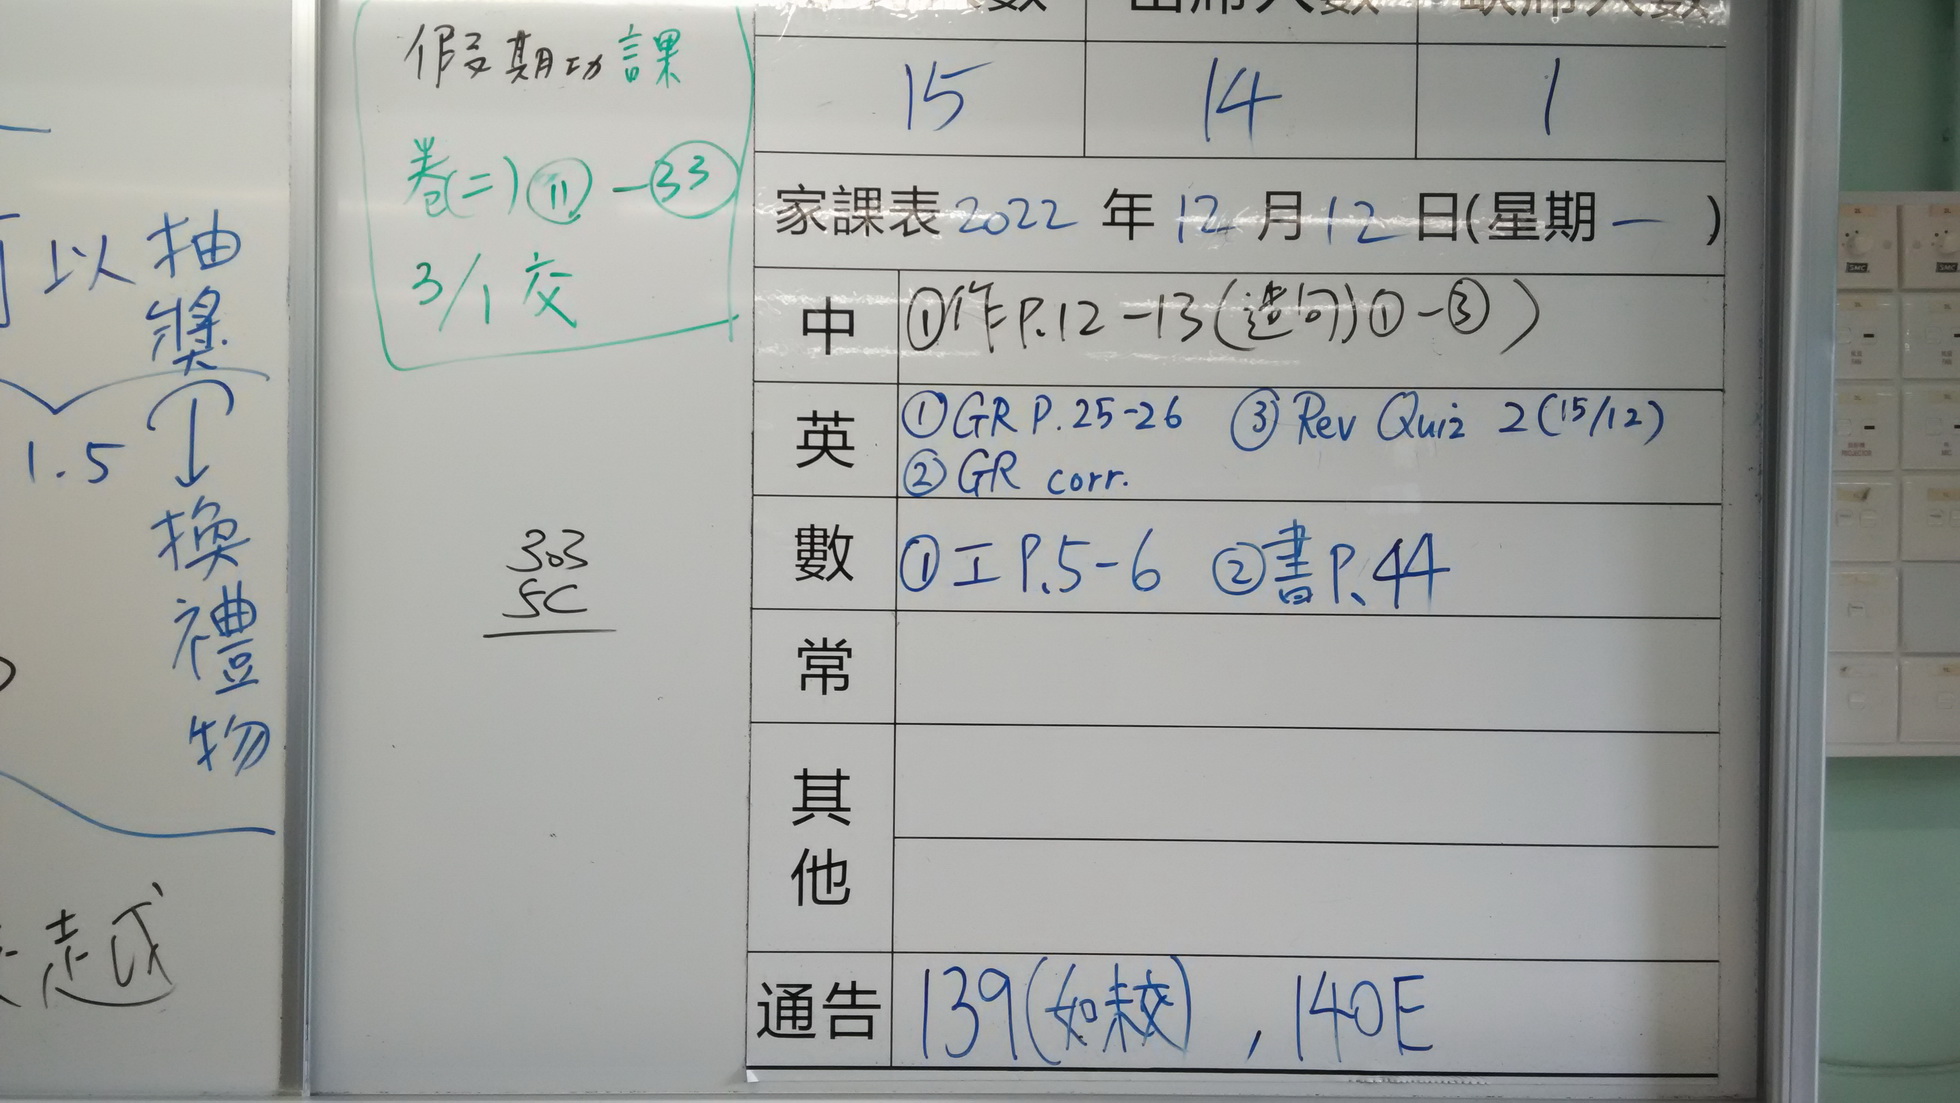 以
抽獎
1.5
換禮物
越
假期功課
卷(二)⑪-㉝
3/1交
303
5C
出席人數
15 14 1
家課表2022年12月12日(星期一)
中 ①作P.12-13(造句)①-③)
英 ①GR P.25-26 ③Rev Quiz 2(15/12)
②GR corr.
數 ①工P.5-6 ②書P.44
常
其他
通告 139(如未交), 140E